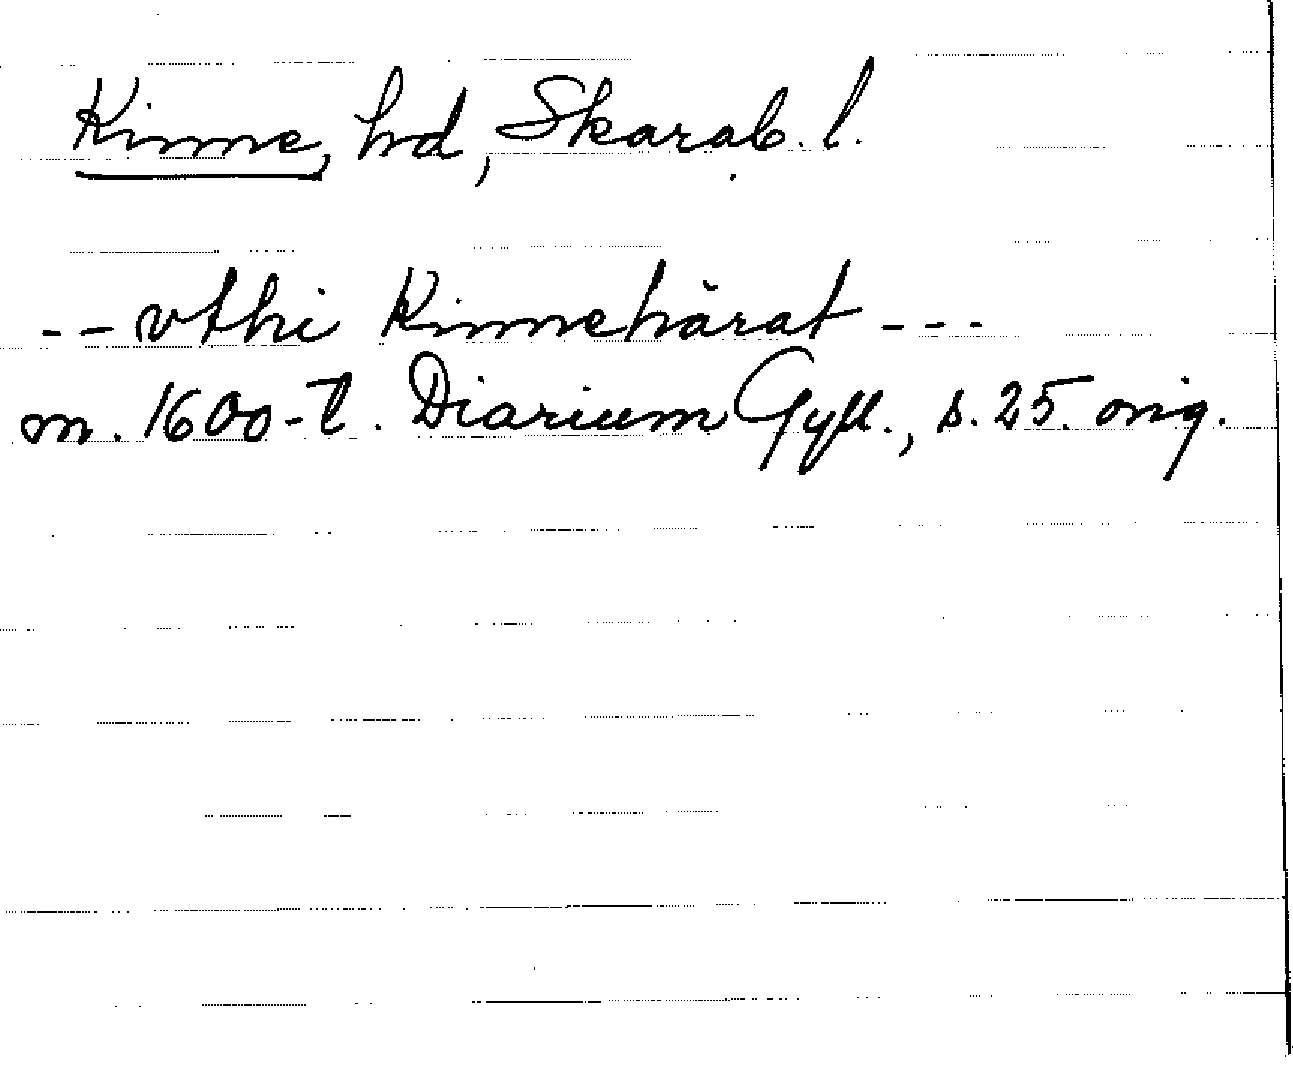 Kinne, hd, Skarab. l.
-- vthi Kinnehärat ---
m. 1600-t. Diarium Gyll., s. 25. orig.